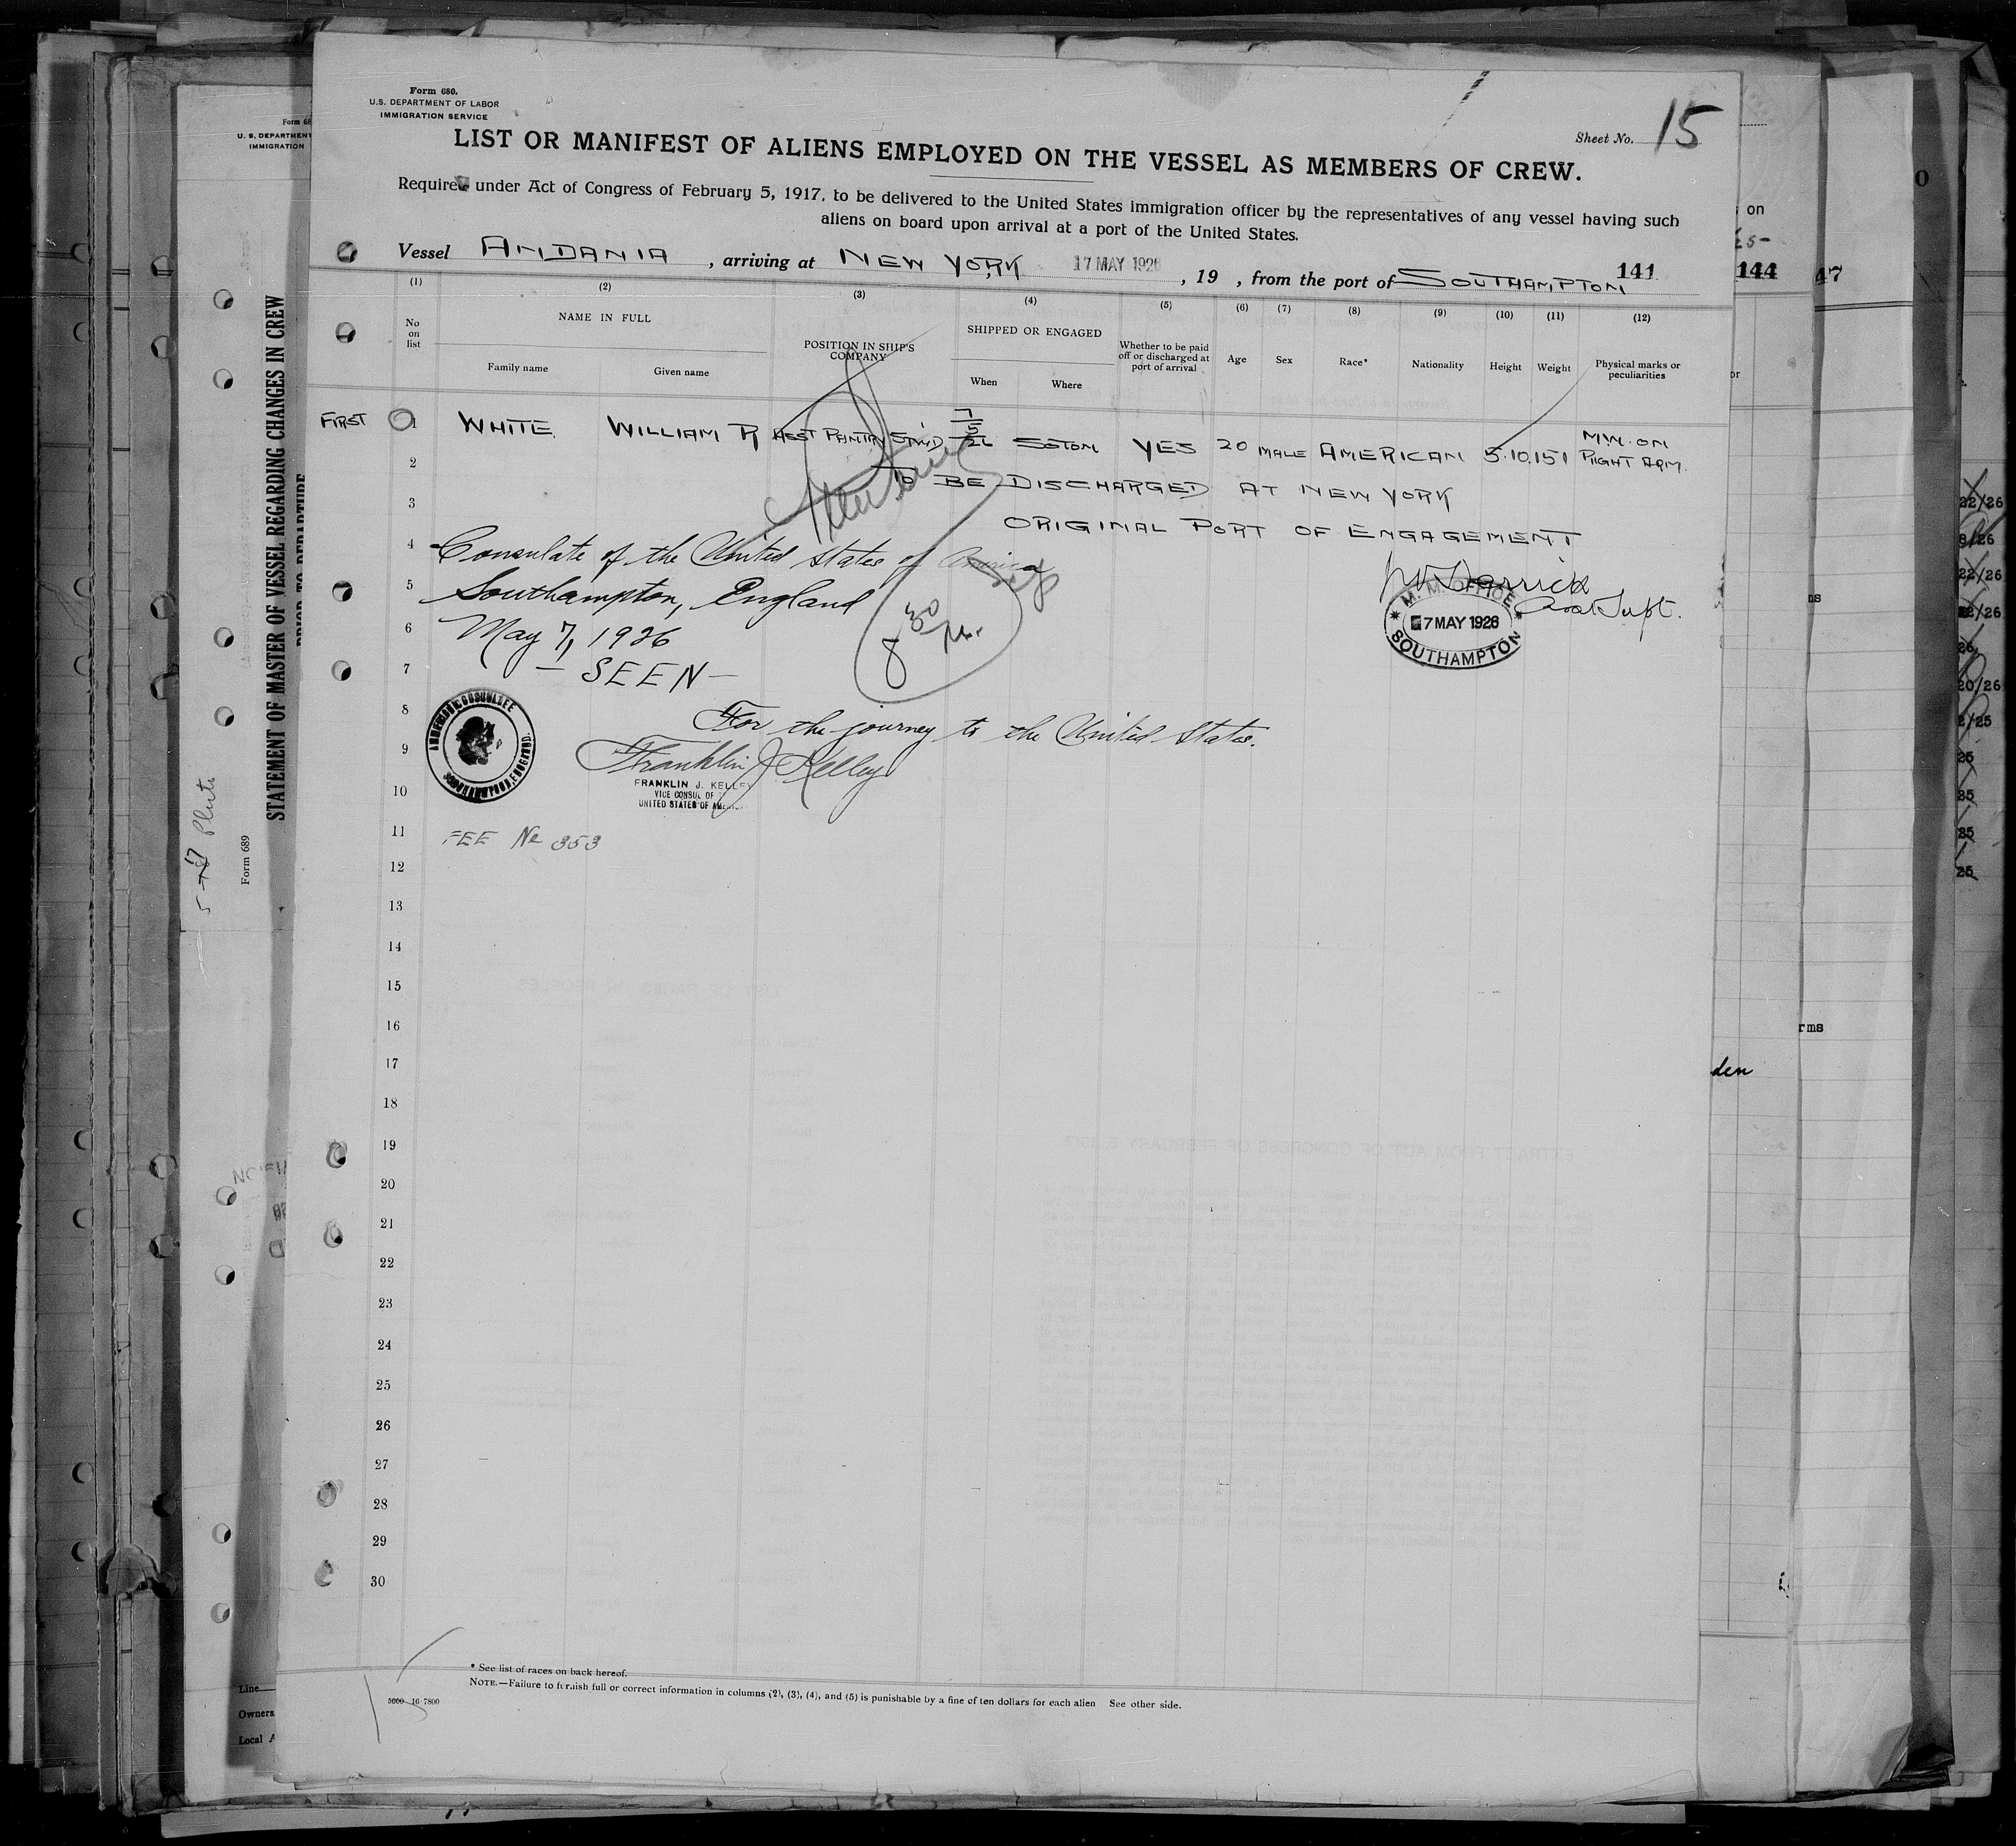 Form 680.
U.S. DEPARTMENT OF LABOR
IMMIGRATION SERVICE
Sheet No. 15
LIST OR MANIFEST OF ALIENS EMPLOYED ON THE VESSEL AS MEMBERS OF CREW.
Required under Act of Congress of February 5, 1917, to be delivered to the United States immigration officer by the representatives of any vessel having such
aliens on board upon arrival at a port of the United States.
Vessel ANDANIA, arriving at NEW YORK 17 MAY 1926, 19 , from the port of SOUTHAMPTON
141
144
47
(1) (2) (3) (4) (5) (6) (7) (8) (9) (10) (11) (12)
No on list
NAME IN FULL
Family name Given name
POSITION IN SHIP'S COMPANY
SHIPPED OR ENGAGED
When Where
Whether to be paid off or discharged at port of arrival
Age Sex Race* Nationality Height Weight
Physical marks or peculiarities
FIRST 1 WHITE. WILLIAM R ASST PANTRY STWD 7/5/26 SOTON YES 20 MALE AMERICAN 5.10. 151 RIGHT ARM.
2 TO BE DISCHARGED AT NEW YORK
3 ORIGINAL PORT OF ENGAGEMENT
4 Consulate of the United States of America
5 Southampton, England
6 May 7, 1926
7 — SEEN —
8 For the journey to the United States.
9 Franklin J Kelley
FRANKLIN J. KELLEY
VICE CONSUL OF
UNITED STATES OF
10
11 FEE No 353
12
13
14
15
16
17
18
19
20
21
22
23
24
25
26
27
28
29
30
8 30
Supt.
M. M. OFFICE
7 MAY 1926
SOUTHAMPTON
* See list of races on back hereof.
NOTE.—Failure to furnish full or correct information in columns (2), (3), (4), and (5) is punishable by a fine of ten dollars for each alien See other side.
U. S. DEPARTMENT
IMMIGRATION
STATEMENT OF MASTER OF VESSEL REGARDING CHANGES IN CREW
PRIOR TO DEPARTURE
Form 689
Line
Owners
Local A
on
or
rms
den